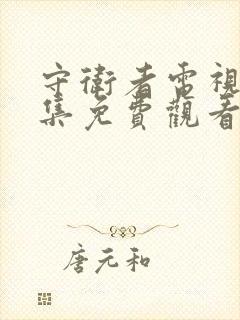 守衛者電視
集免費觀看
唐元和